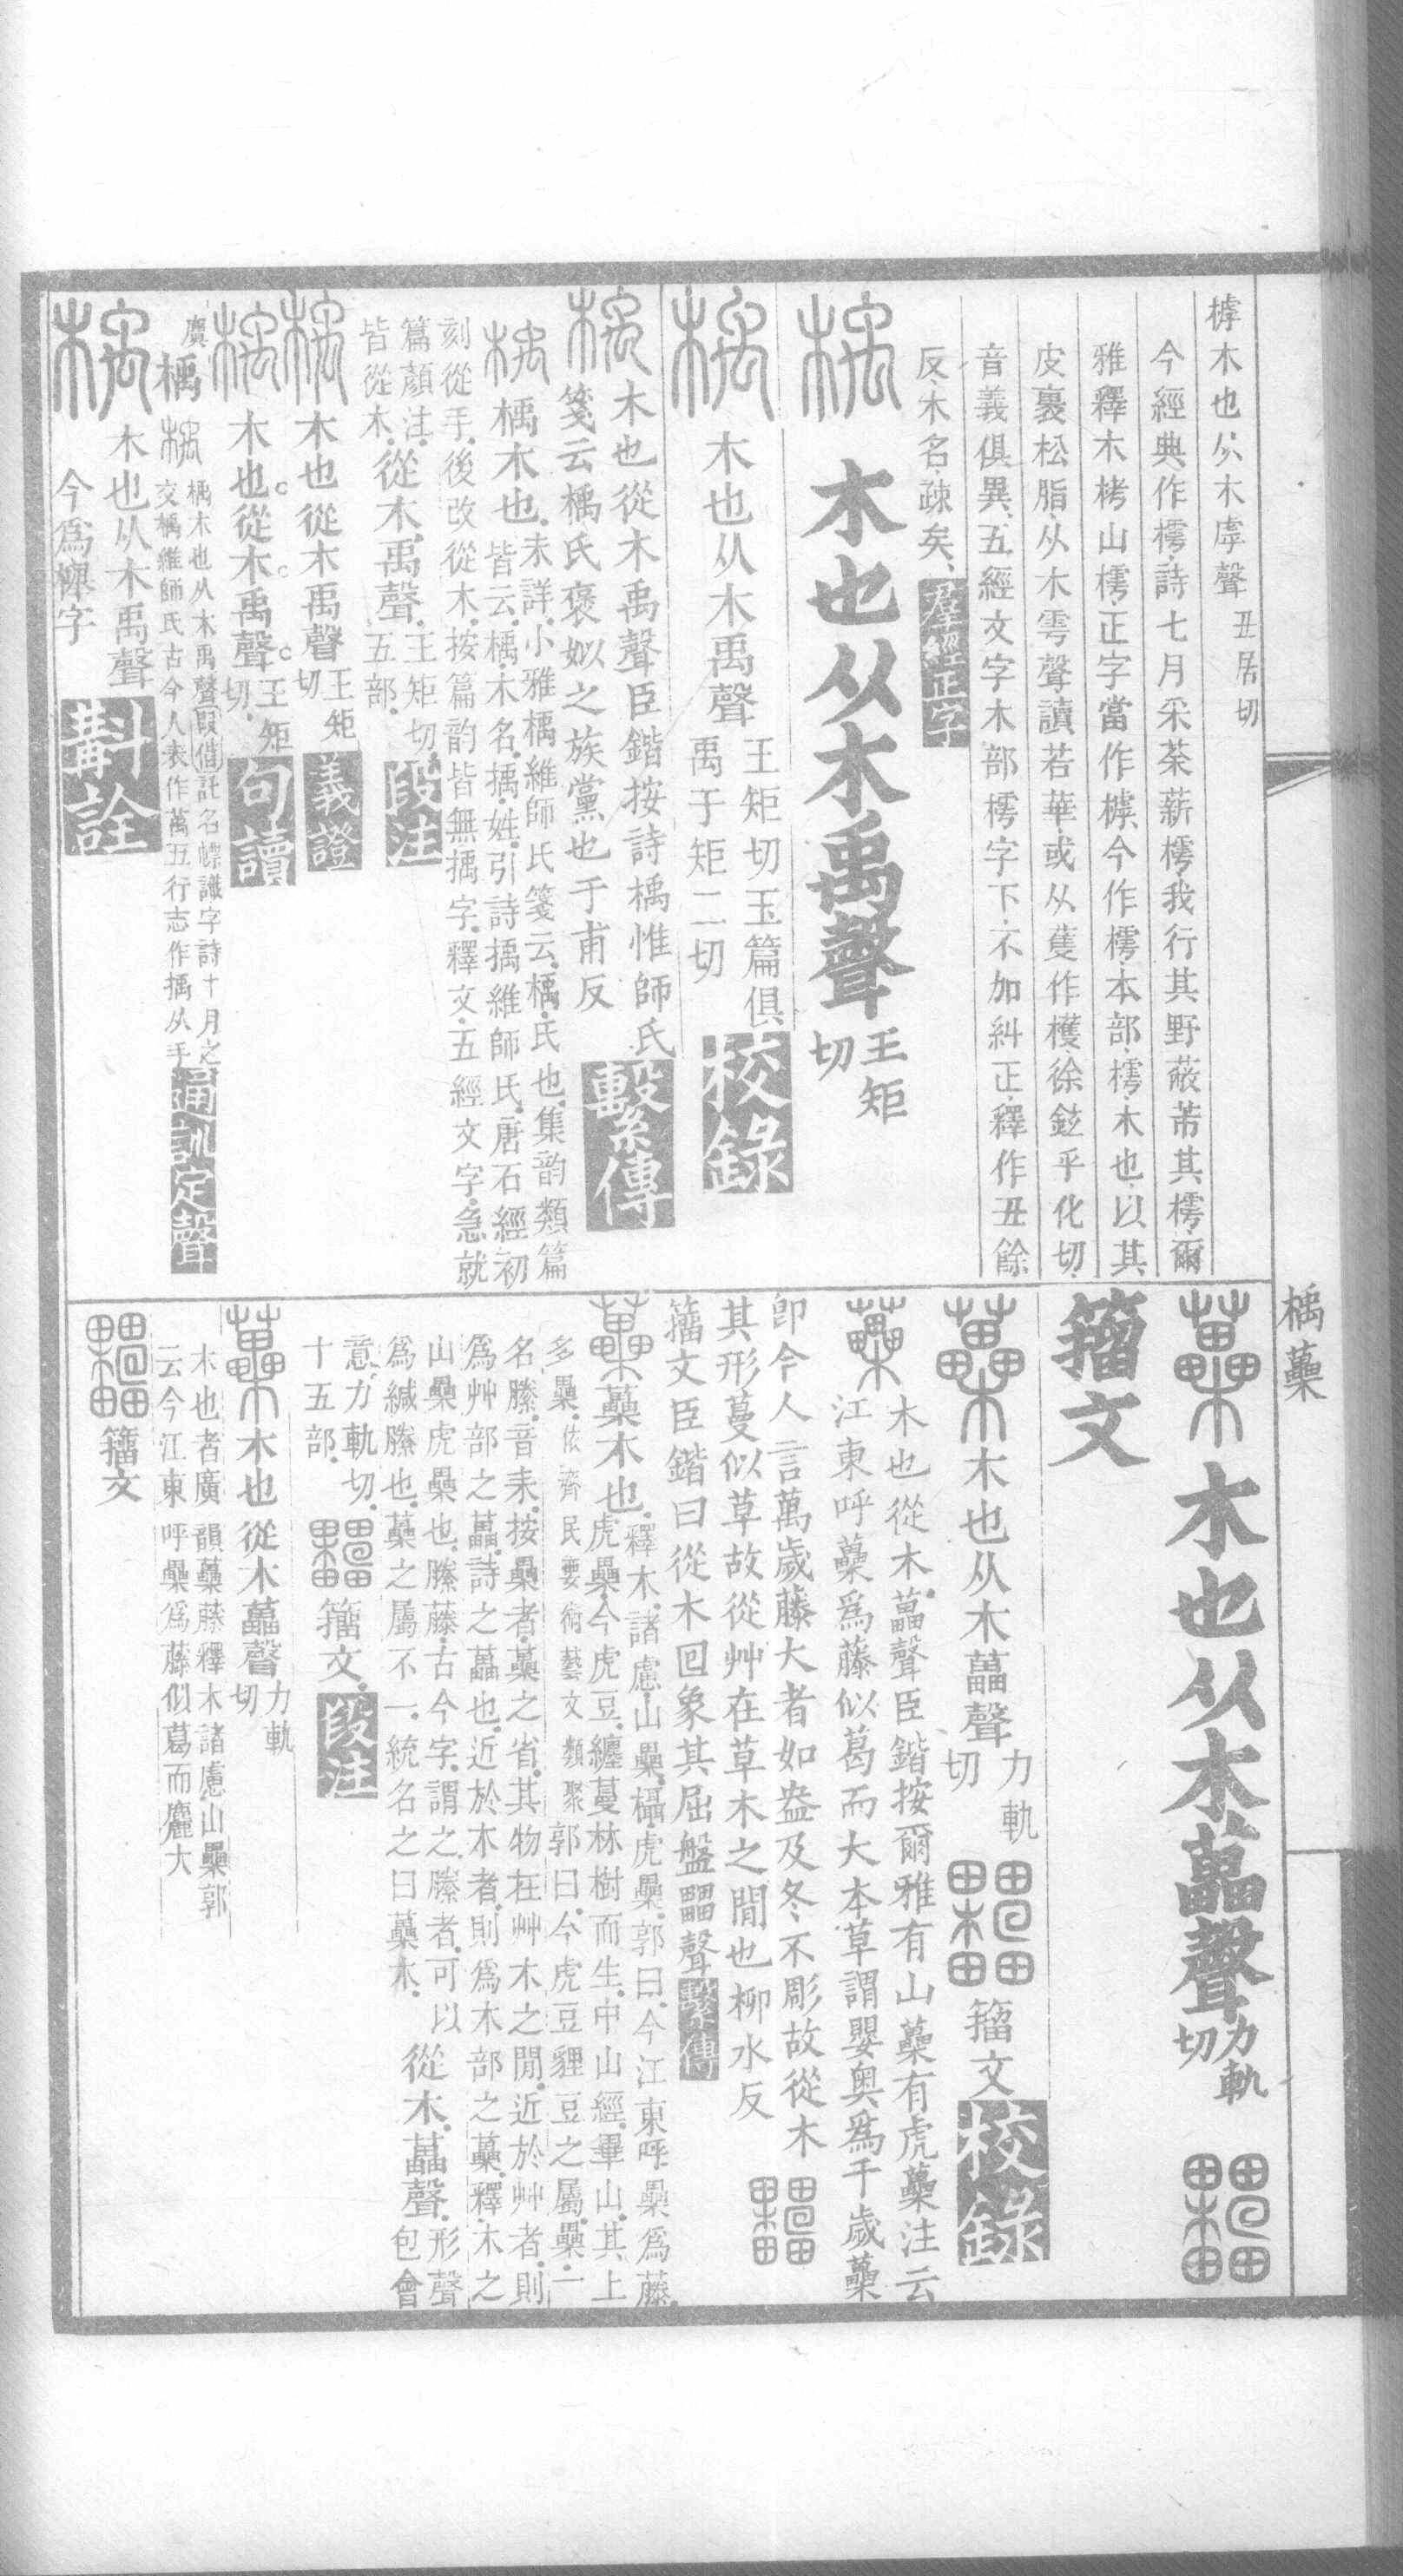 樗木也从木雽聲 丑居切
今經典作樗詩七月采荼薪樗我行其野蔽芾其樗爾
雅釋木栲山樗正字當作樗今作樗本部樗木也以其
皮裹松脂从木雩聲讀若華或从蒦作檴徐鉉乎化切
音義俱異五經文字木部樗字下不加糾正釋作丑餘
反木名疎矣 群經正字
木也从木禹聲 王矩切
木也从木禹聲 王矩切玉篇俱禹于矩二切 校錄
木也從木禹聲臣鍇按詩楀惟師氏
箋云楀氏褒姒之族黨也于甫反 繫傳
楀木也未詳小雅楀維師氏箋云楀氏也集韵類篇
皆云楀木名㩼姓引詩㩼維師氏唐石經初
刻從手後改從木按篇韵皆無㩼字釋文五經文字急就
篇顏注皆從木從木禹聲王矩切五部 段注
木也從木禹聲 王矩切 義證
木也從木禹聲 王矩切 句讀
楀 楀木也从木禹聲叚借託名幖識字詩十月之
交楀維師氏古今人表作萬五行志作㩼从手 通訓定聲
木也从木禹聲
今爲榘字 斠詮
楀藟
木也从木畾聲 力軌切
籀文
木也从木藟聲 力軌切 籀文 校錄
木也從木藟聲臣鍇按爾雅有山藟有虎藟注云
江東呼藟爲藤似葛而大本草謂嬰奥爲千歲藟
卽今人言萬歲藤大者如盎及冬不彫故從木
其形蔓似草故從艸在草木之間也柳水反
籀文臣鍇曰從木回象其屈盤畾聲 繫傳
藟木也釋木諸慮山櫐欇虎櫐郭曰今江東呼櫐爲藤
虎櫐今虎豆纏蔓林樹而生中山經畢山其上
多櫐依齊民要術藝文類聚郭曰今虎豆貍豆之屬櫐一
名縢音耒按櫐者藟之省其物在艸木之閒近於艸者則
爲艸部之藟詩之藟也近於木者則爲木部之藟釋木之
山櫐虎櫐也縢藤古今字謂之縢者可以
爲緘縢也藟之屬不一統名之曰藟木從木藟聲形聲包會
意力軌切十五部 籀文 段注
木也從木藟聲 力軌切
木也者廣韻藟藤釋木諸慮山櫐郭
云今江東呼櫐爲藤似葛而麤大
籀文